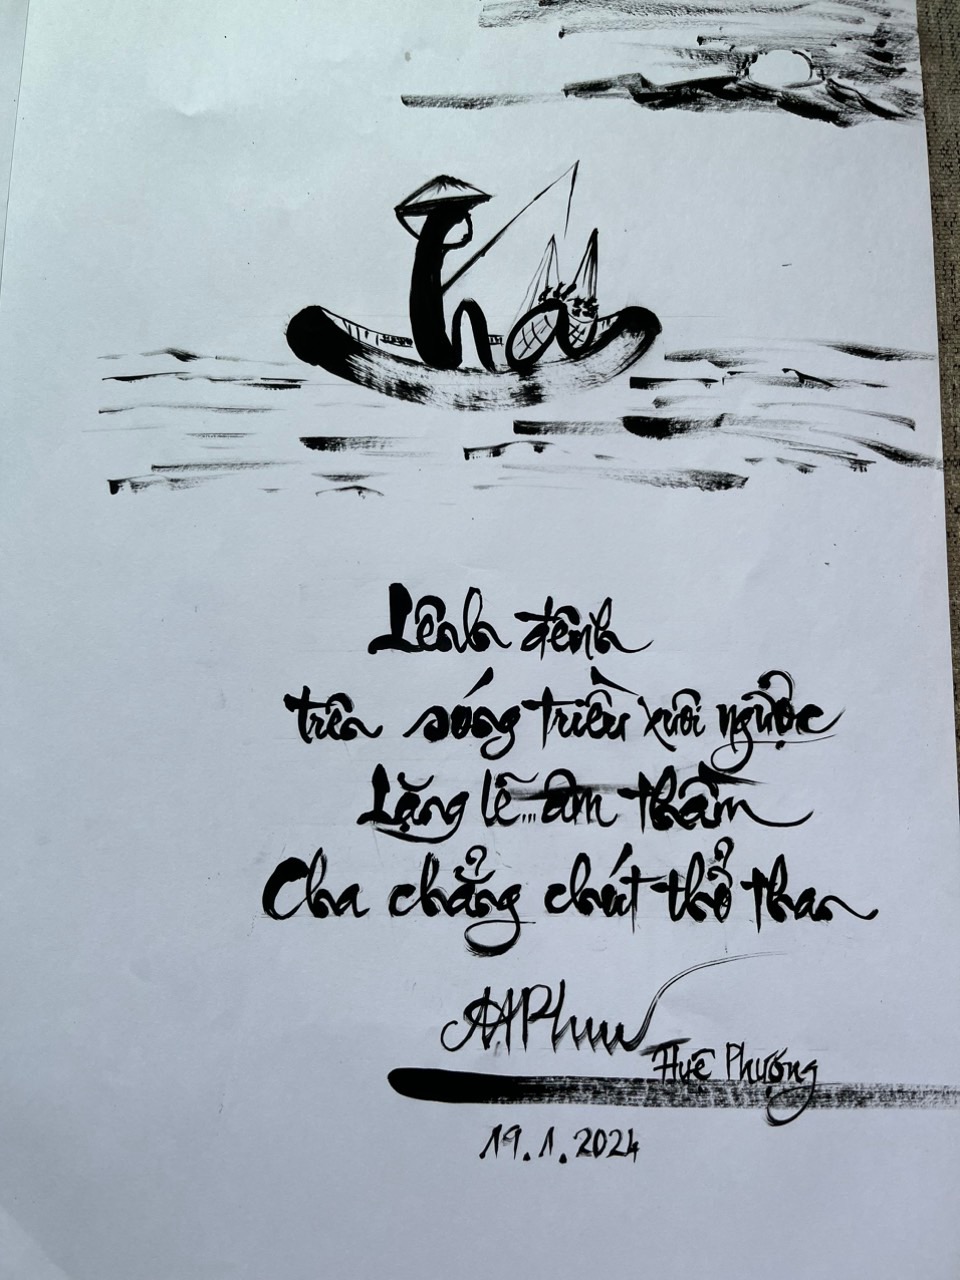 Cha
Lênh đênh
trên sóng triều xuôi ngược
Lặng lẽ... âm thầm
Cha chẳng chút thở than
Huệ Phượng
19.1.2024